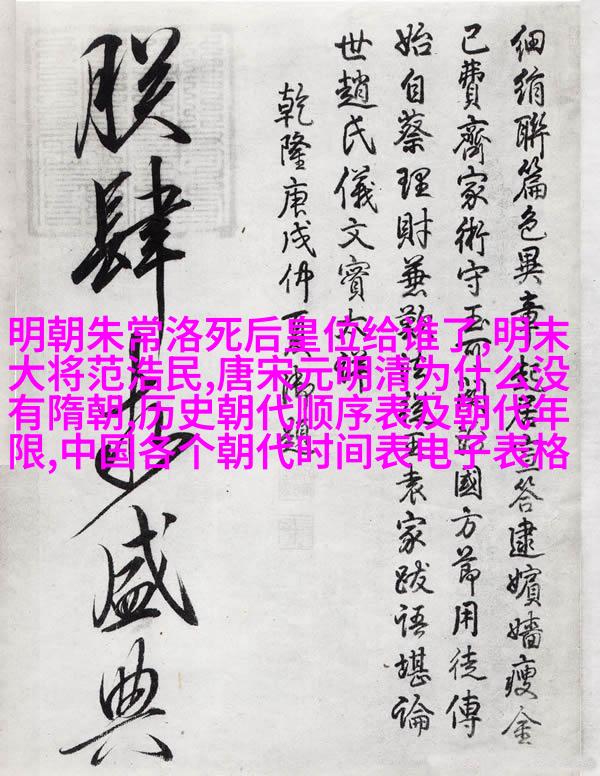 明朝朱常洛死后皇位给谁了,明末
大将范浩民,唐宋元明清为什么没
有隋朝,历史朝代顺序表及朝代年
限,中国各个朝代时间表电子表格
細絹聯篇色異章起居宣答逮嬪嬙瘦金
已費齊家術守玉國方節用徒傳
始自蔡理財兼王袁家跋語堪論
世趙氏儀文實大
乾隆庚戌仲夏御題
朕肆盛典